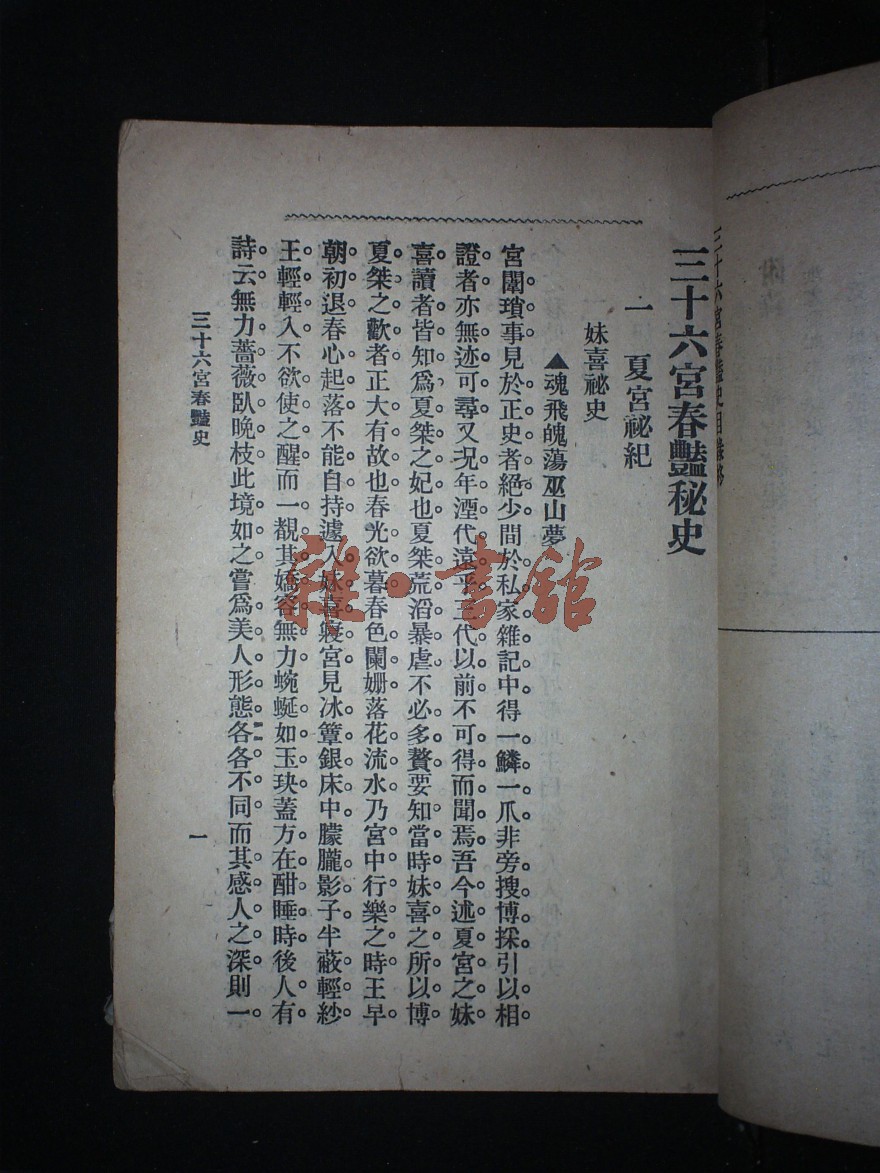 三十六宮春豔秘史
一　夏宮祕紀
妹喜祕史
▲魂飛魄蕩巫山夢
宮闈瑣事見於正史者絕少間於私家雜記中得一鱗一爪非旁搜博採引以相
證者亦無迹可尋又况年湮代遠乎三代以前不可得而聞焉吾今述夏宮之妹
喜讀者皆知爲夏桀之妃也夏桀荒滔暴虐不必多贅要知當時妹喜之所以博
夏桀之歡者正大有故也春光欲暮春色闌姍落花流水乃宮中行樂之時王早
朝初退春心起落不能自持遽入妹喜寢宮見冰簟銀床中朦朧影子半蔽輕紗
王輕輕入不欲使之醒而一覩其嬌容無力蜿蜒如玉玦蓋方在酣睡時後人有
詩云無力薔薇臥晚枝此境如之嘗爲美人形態各各不同而其感人之深則一
三十六宮春豔史
一
雜·書舘